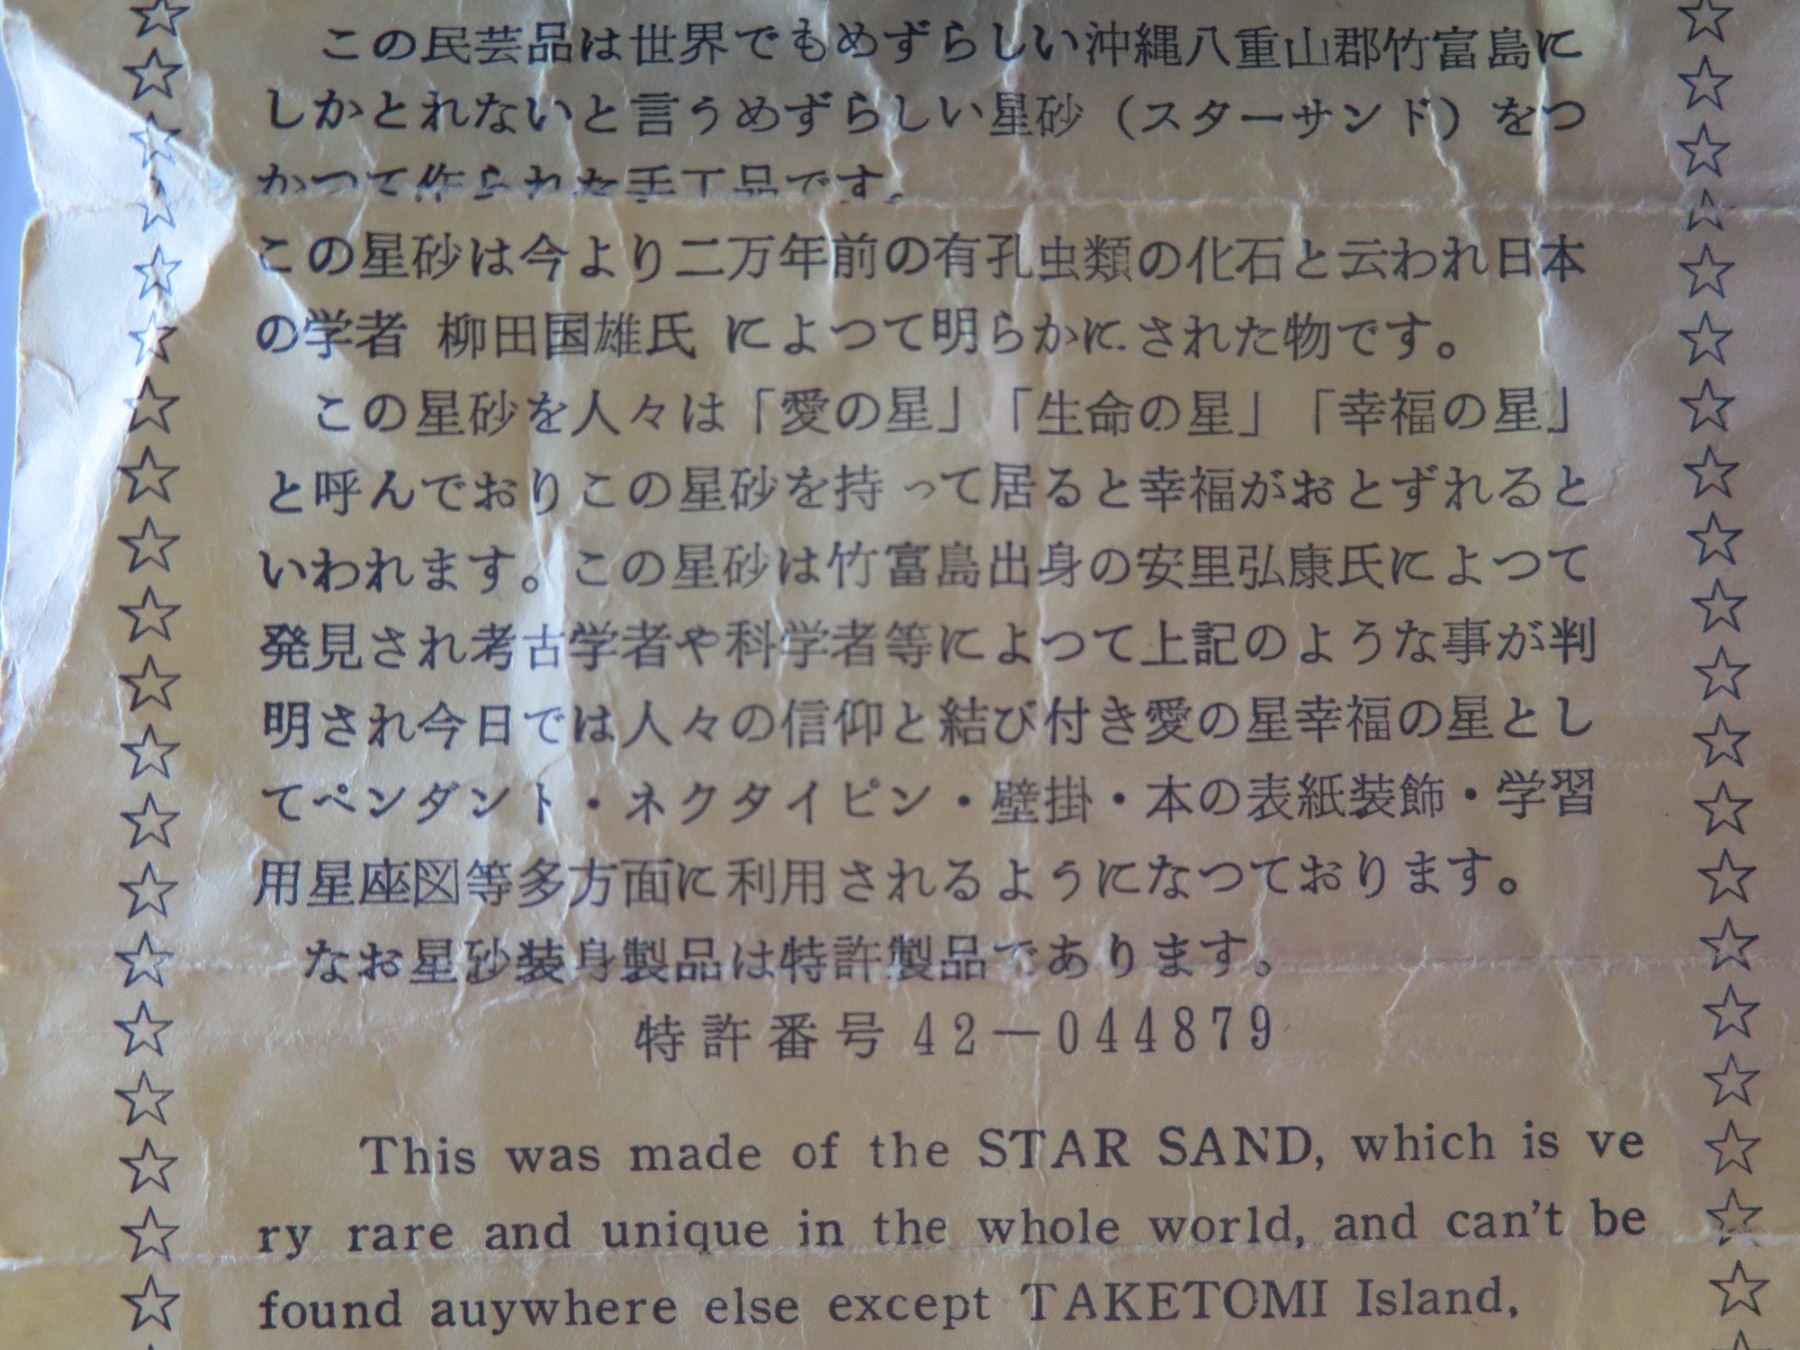 この民芸品は世界でもめずらしい沖縄八重山郡竹富島に
しかとれないと言うめずらしい星砂（スターサンド）をつ
かつて作られた手工品です。
この星砂は今より二万年前の有孔虫類の化石と云われ日本
の学者 柳田国雄氏 によつて明らかにされた物です。
この星砂を人々は「愛の星」「生命の星」「幸福の星」
と呼んでおりこの星砂を持って居ると幸福がおとずれると
いわれます。この星砂は竹富島出身の安里弘康氏によつて
発見され考古学者や科学者等によつて上記のような事が判
明され今日では人々の信仰と結び付き愛の星幸福の星とし
てペンダント・ネクタイピン・壁掛・本の表紙装飾・学習
用星座図等多方面に利用されるようになつております。
なお星砂装身製品は特許製品であります。
特許番号 42－044879
This was made of the STAR SAND, which is ve
ry rare and unique in the whole world, and can't be
found auywhere else except TAKETOMI Island,